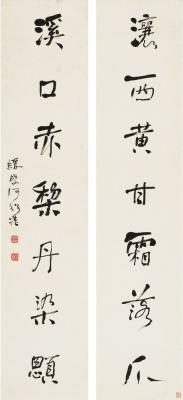 瀼西黄甘霜落爪
溪口赤棃丹染顋
蝯叟何紹基